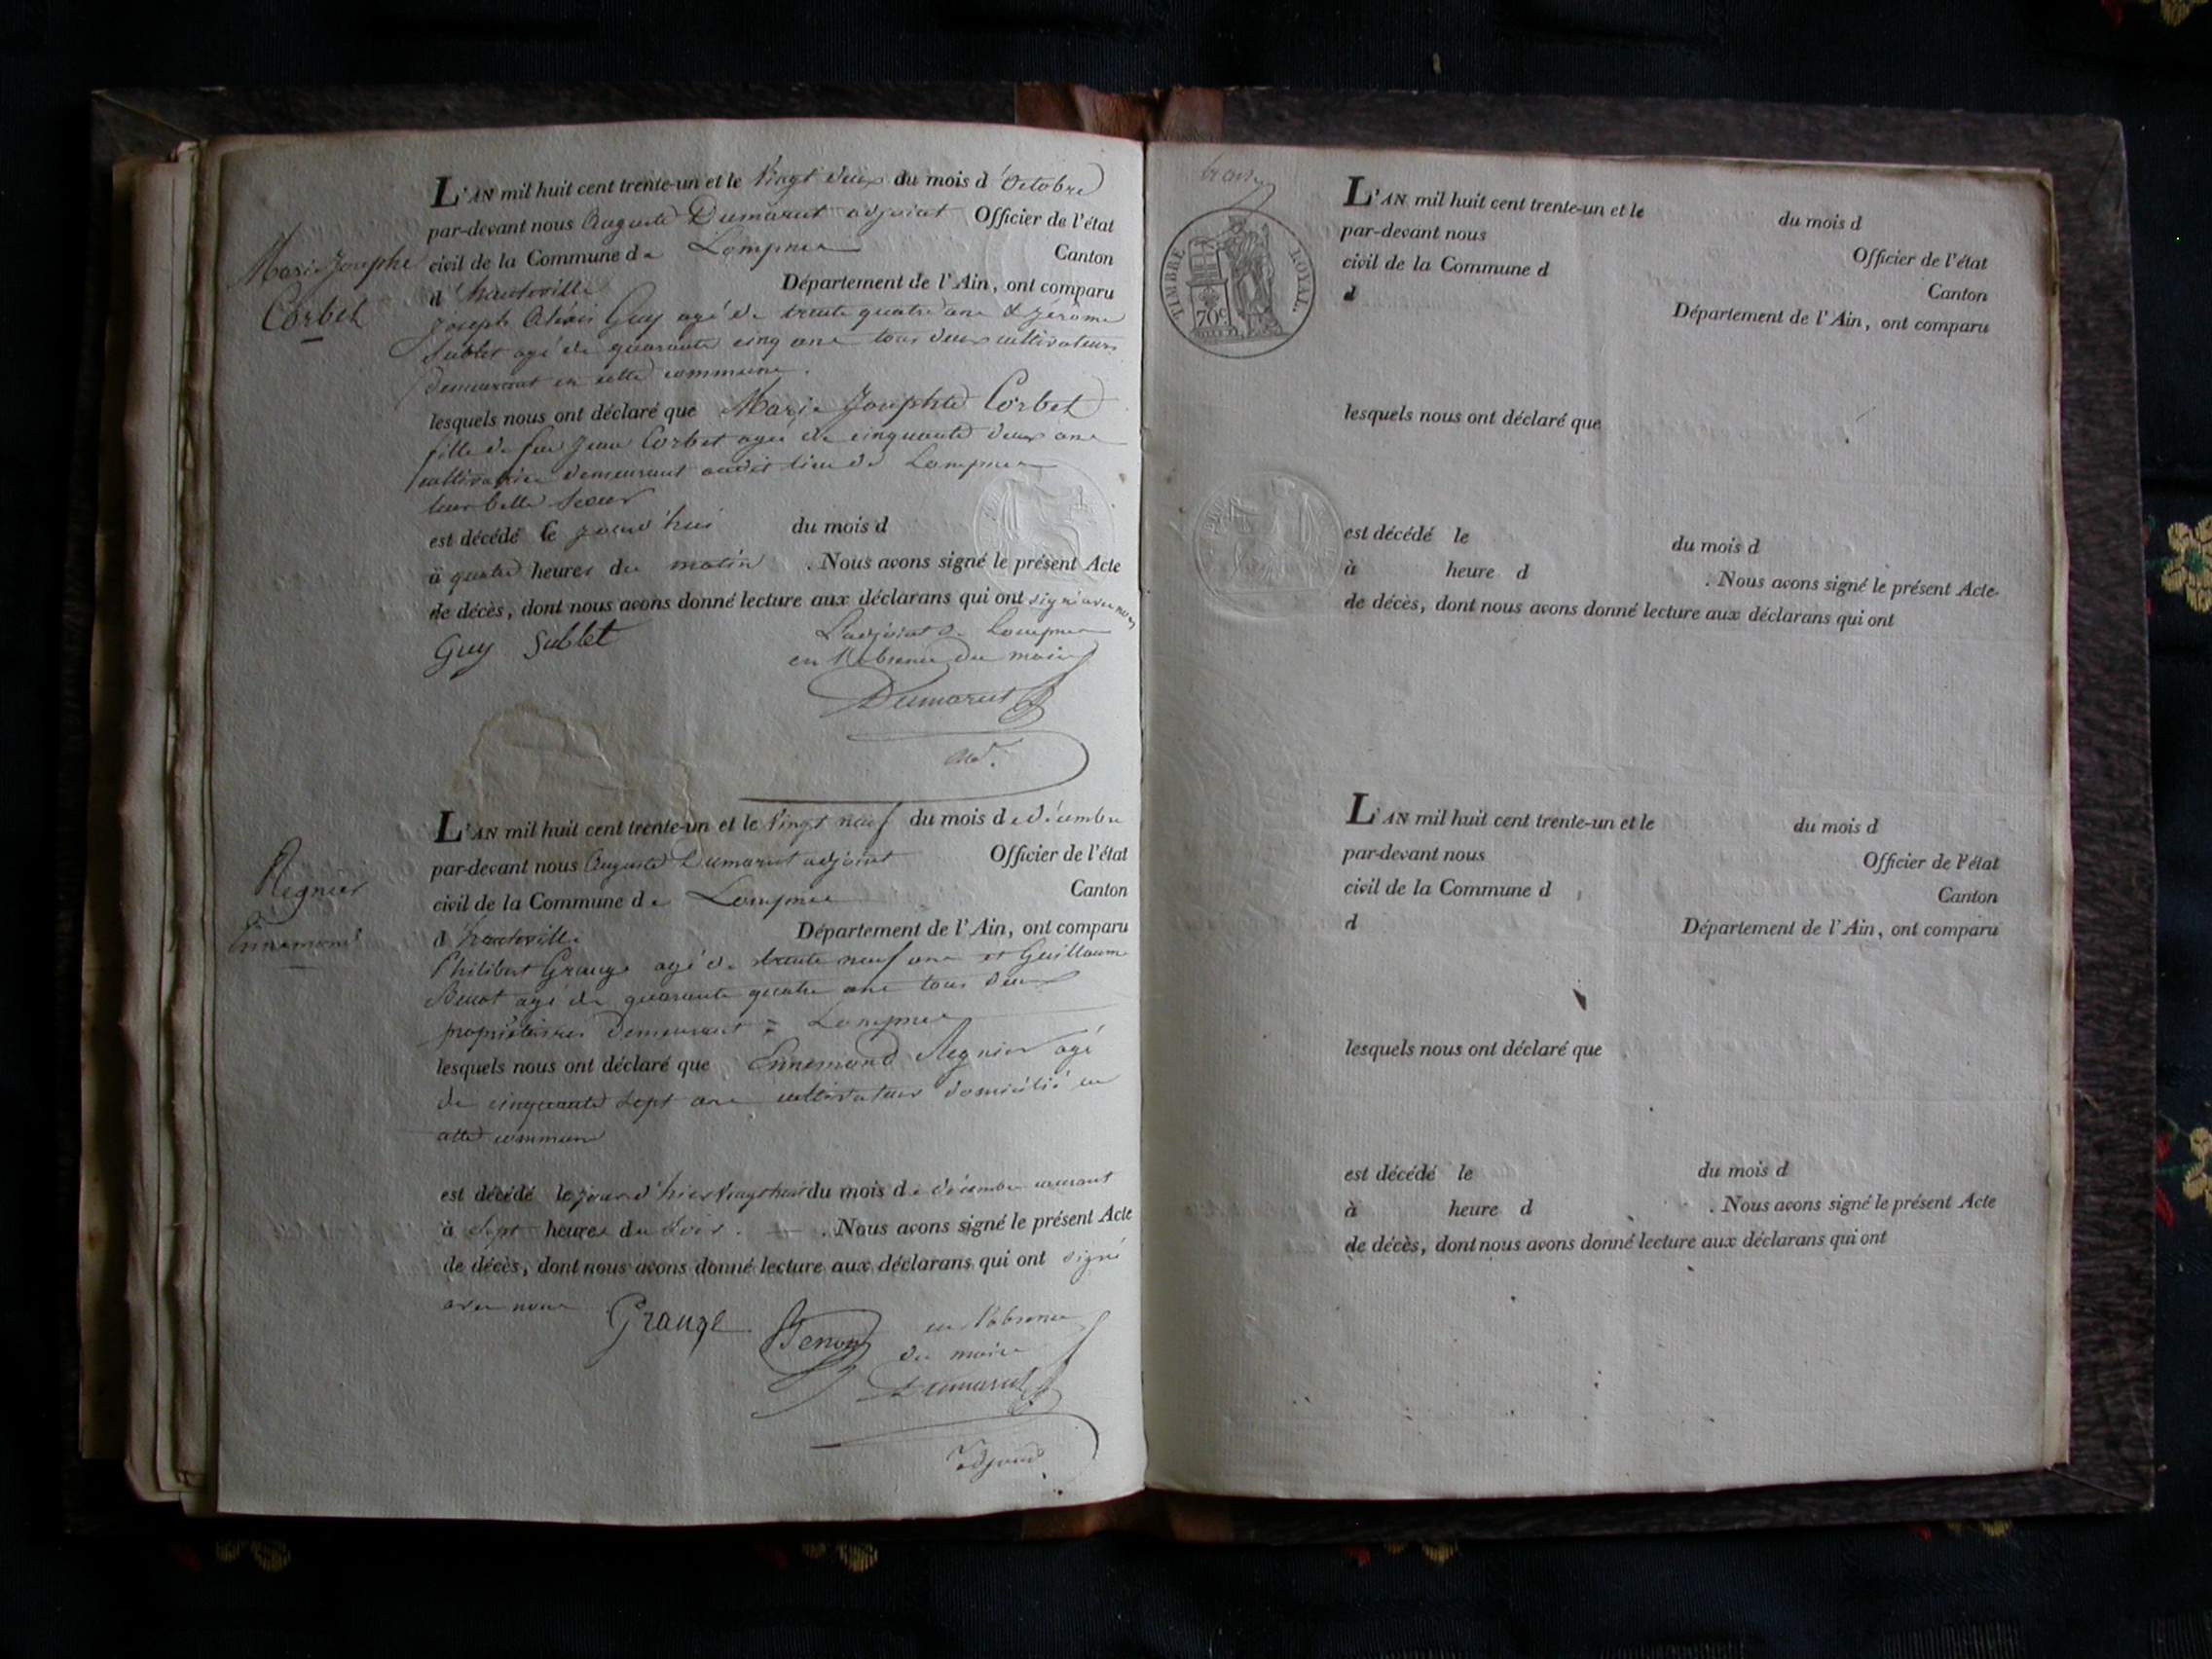 Marie Josephte
Corbet
L'AN mil huit cent trente-un et le Vingt deux du mois d'Octobre
par-devant nous Auguste Dumarut adjoint Officier de l'état
civil de la Commune de Lompnes Canton
d'hauteville Département de l'Ain, ont comparu
joseph Guy agé de trente quatre ans & jérôme
Sublet agé de quarante cinq ans tous deux cultivateurs
demeurant en cette commune.
lesquels nous ont déclaré que Marie Josephte Corbet
fille de feu Jean Corbet agée de cinquante deux ans
cultivatrice demeurant audit lieu de Lompnes
leur belle Soeur
est décédé le jourd'hui du mois d
à quatre heures du matin . Nous avons signé le présent Acte
de décès, dont nous avons donné lecture aux déclarans qui ont signé avec nous
Guy Sublet
L'adjoint de Lompnes
en l'absence du maire
Dumarut
adt.
Regnier
Ennemond
L'AN mil huit cent trente-un et le Vingt neuf du mois de décembre
par-devant nous Auguste Dumarut adjoint Officier de l'état
civil de la Commune de Lompnes Canton
d'hauteville Département de l'Ain, ont comparu
Philibert Grange agé de trente neuf ans et Guillaume
agé de quarante quatre ans tous deux
propriétaires demeurant à Lompnes
lesquels nous ont déclaré que Ennemond Regnier agé
de cinquante sept ans cultivateur domicilié en
cette commune
est décédé le jour d'hier vingt huit du mois de décembre courant
à Sept heures du Soir. . Nous avons signé le présent Acte
de décès, dont nous avons donné lecture aux déclarans qui ont signé
avec nous
Grange
en l'absence
du maire
Dumarut
adjoint
TIMBRE ROYAL.
70c
L'AN mil huit cent trente-un et le du mois d
par-devant nous Officier de l'état
civil de la Commune d Canton
d Département de l'Ain, ont comparu
lesquels nous ont déclaré que
est décédé le du mois d
à heure d . Nous avons signé le présent Acte
de décès, dont nous avons donné lecture aux déclarans qui ont
L'AN mil huit cent trente-un et le du mois d
par-devant nous Officier de l'état
civil de la Commune d Canton
d Département de l'Ain, ont comparu
lesquels nous ont déclaré que
est décédé le du mois d
à heure d . Nous avons signé le présent Acte
de décès, dont nous avons donné lecture aux déclarans qui ont